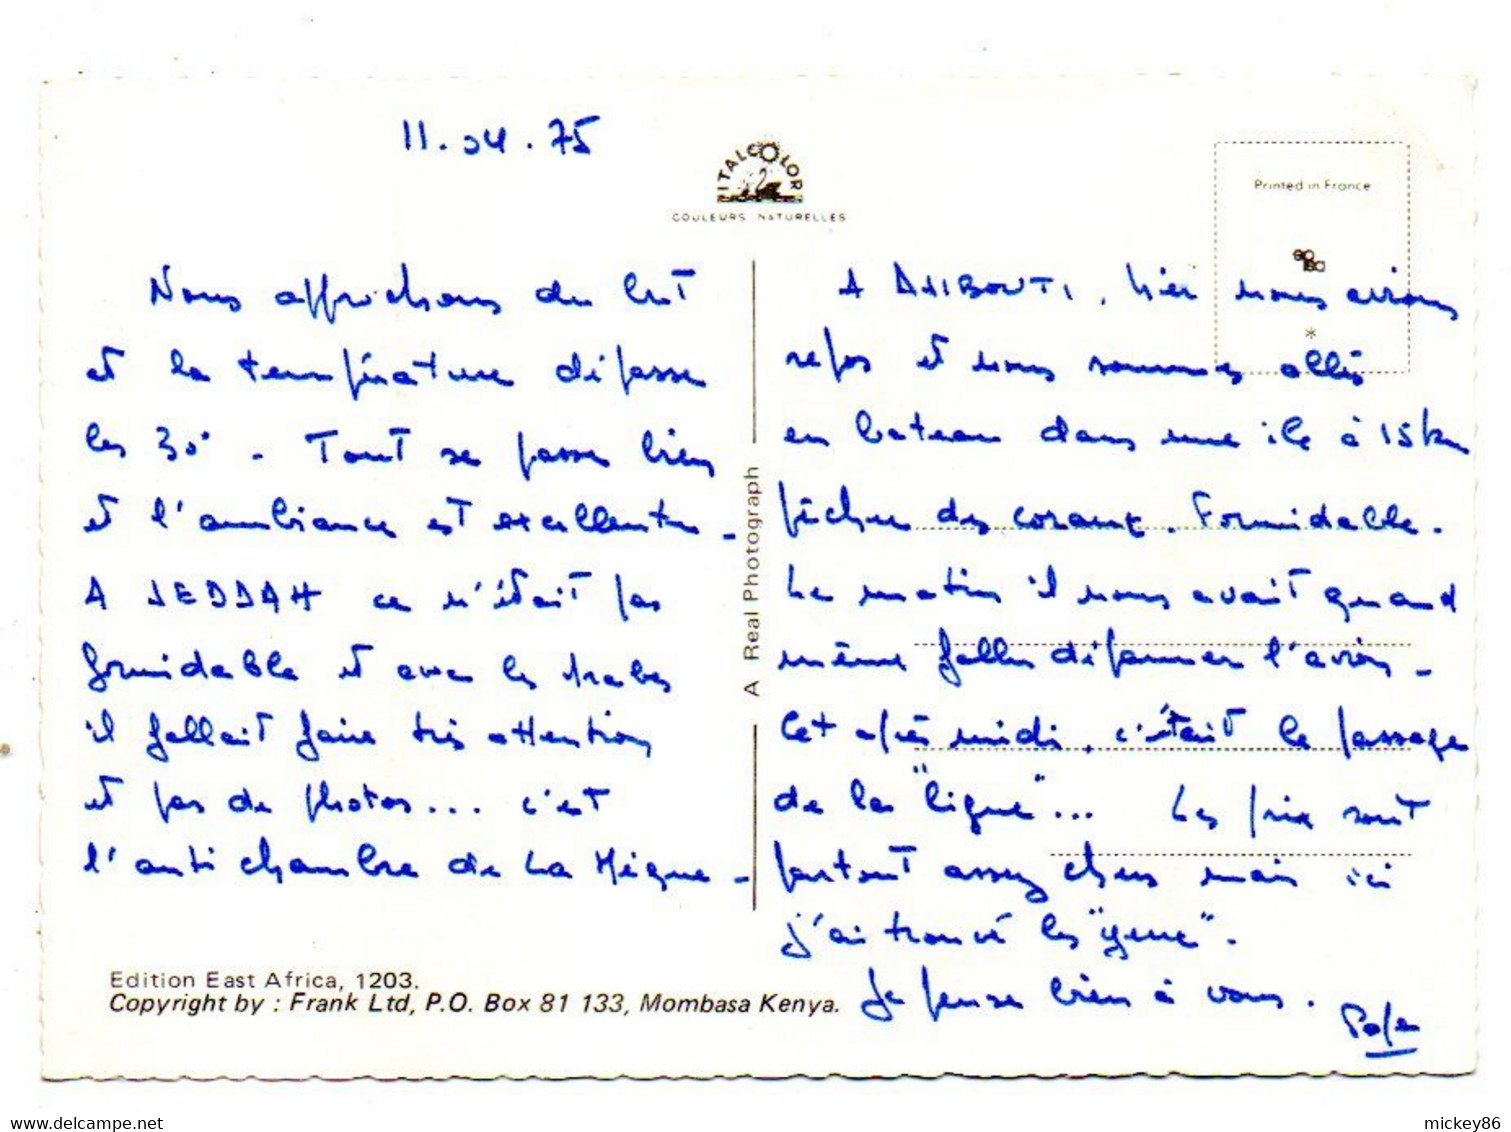 11.04.75
ITALCOLOR
COULEURS NATURELLES
Printed in France
Nous approchons du but
et la température dépasse
les 30° - Tout se passe bien
et l'ambiance est excellente -
A JEDDAH ce n'était pas
formidable et avec les Arabes
il fallait faire très attention
et pas de photos... c'est
l'anti chambre de La Mèque -
Edition East Africa, 1203.
Copyright by : Frank Ltd, P.O. Box 81 133, Mombasa Kenya.
A Real Photograph
A DJIBOUTI, hier nous avions
repos et nous sommes allés
en bateau dans une île à 15 km
pêcher des coraux. Formidable.
Le matin il nous avait quand
même fallu dépanner l'avion -
Cet après midi, c'était le passage
de la "ligne"... Les prix sont
partout assez chers mais ici
j'ai trouvé les
Je pense bien à vous.
mickey86